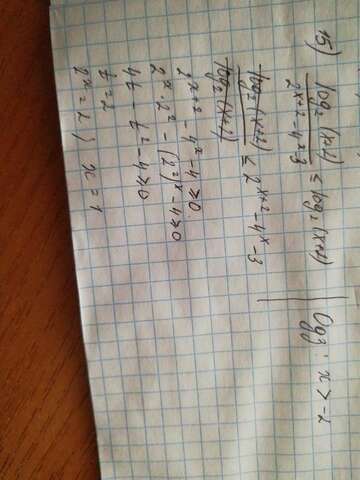 15) log₂(x+2) / (2^(x+2) - 4^x - 3) ≤ log₂(x+2) | ОДЗ: x > -2
log₂(x+2) / log₂(x+2) ≤ 2^(x+2) - 4^x - 3
2^(x+2) - 4^x - 4 ≥ 0
2^x · 2² - (2²)^x - 4 ≥ 0
4t - t² - 4 ≥ 0
t = 2
2^x = 2 / x = 1